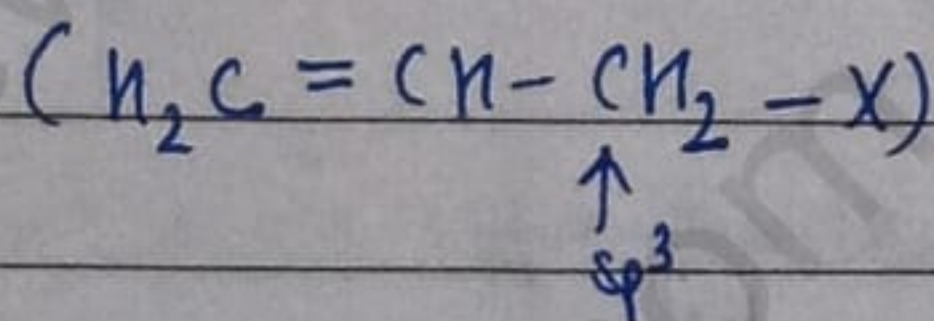 (H₂C = CH - CH₂ - X)
↑
sp³